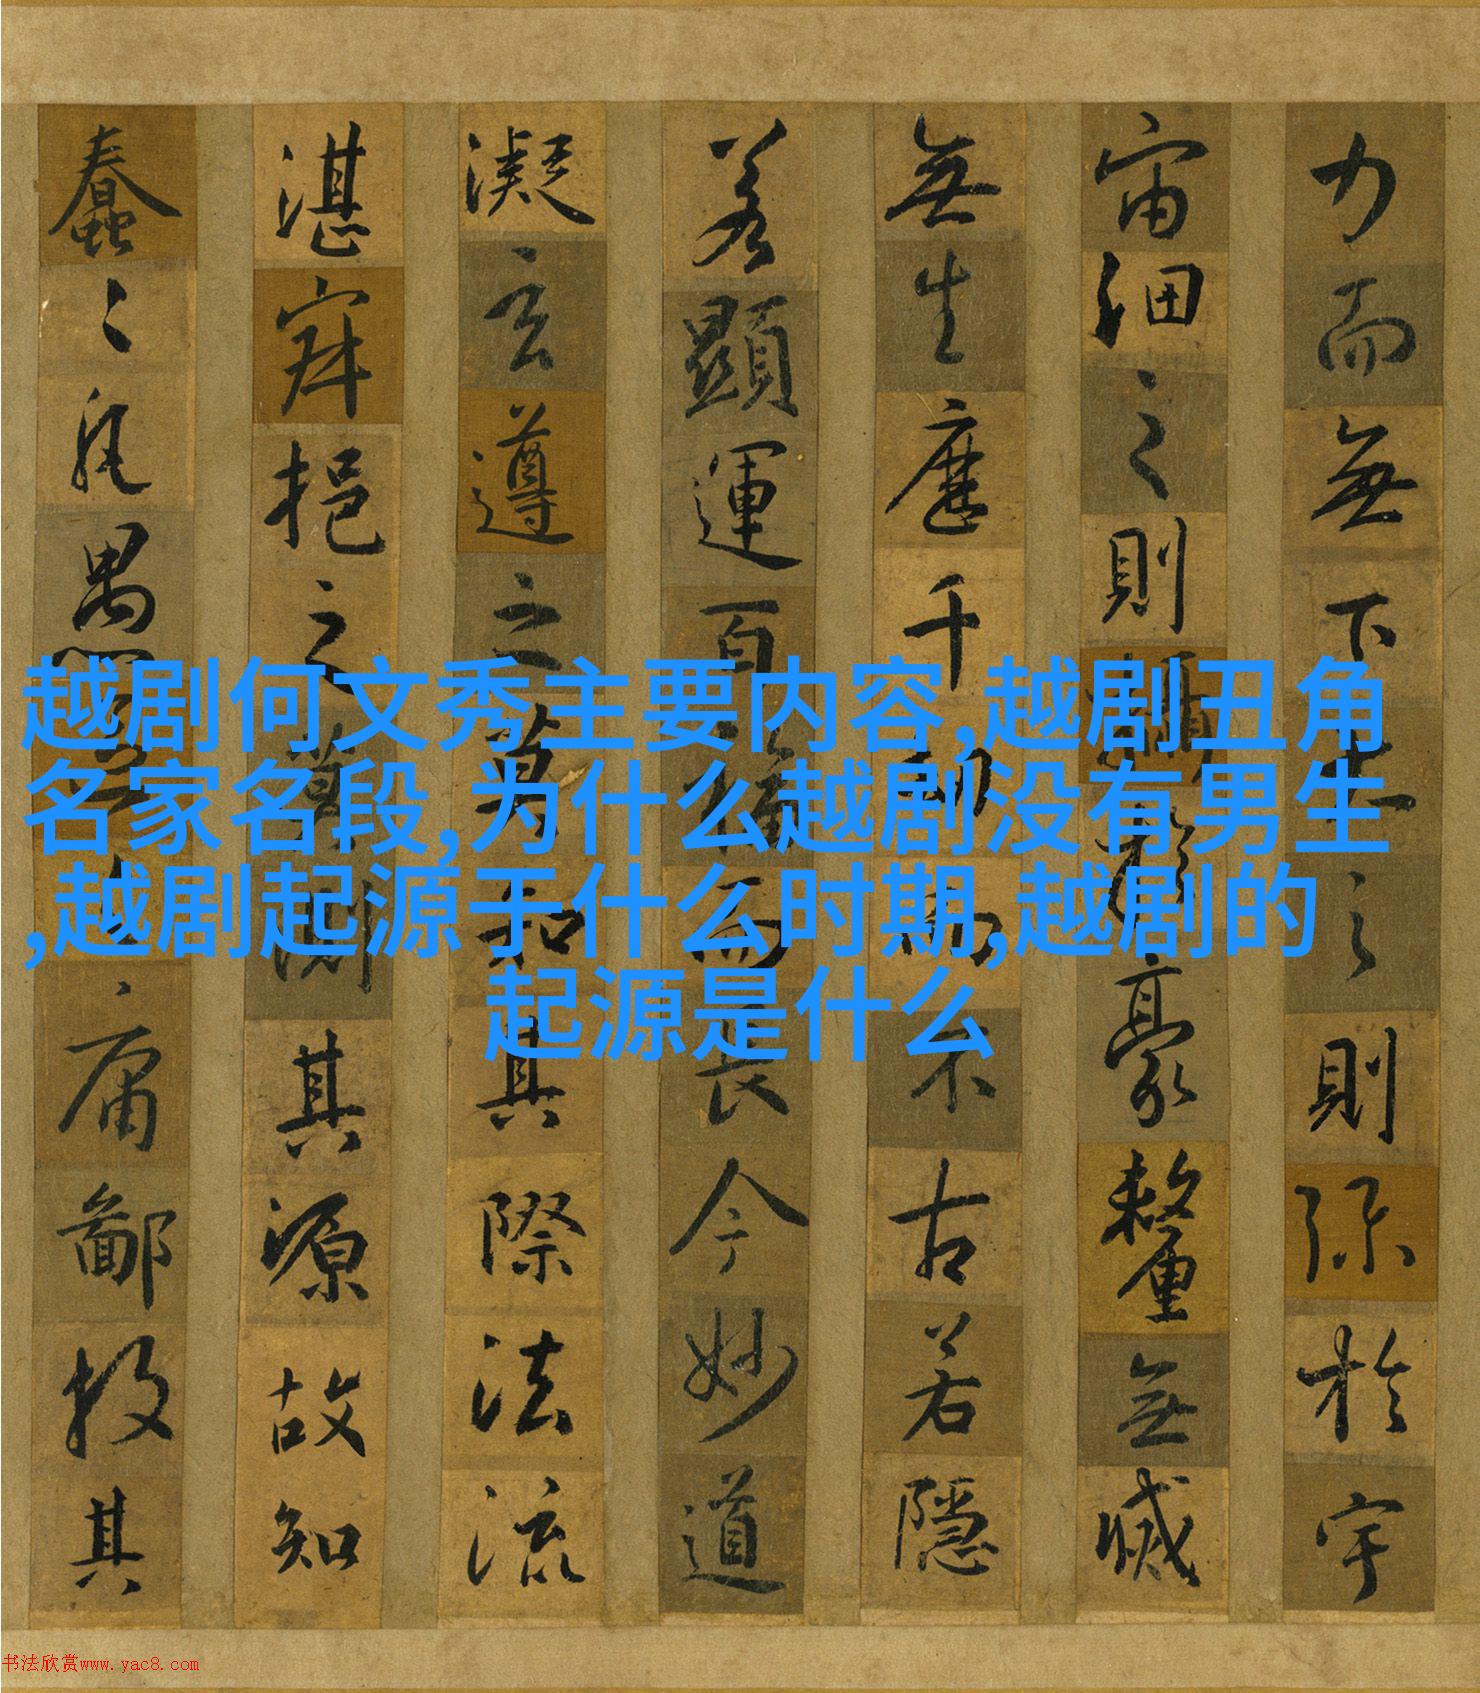 力而無下大之則彌於宇
宙細之則攝於豪釐無滅
無生歷千劫而不古若隱
若顯運百福而長今妙道
凝玄遵之莫知其際法流
湛寂挹之莫測其源故知
蠢〻凡愚區〻庸鄙投其
越剧何文秀主要内容,越剧丑角
名家名段,为什么越剧没有男生
,越剧起源于什么时期,越剧的
起源是什么
书法欣赏www.yac8.com